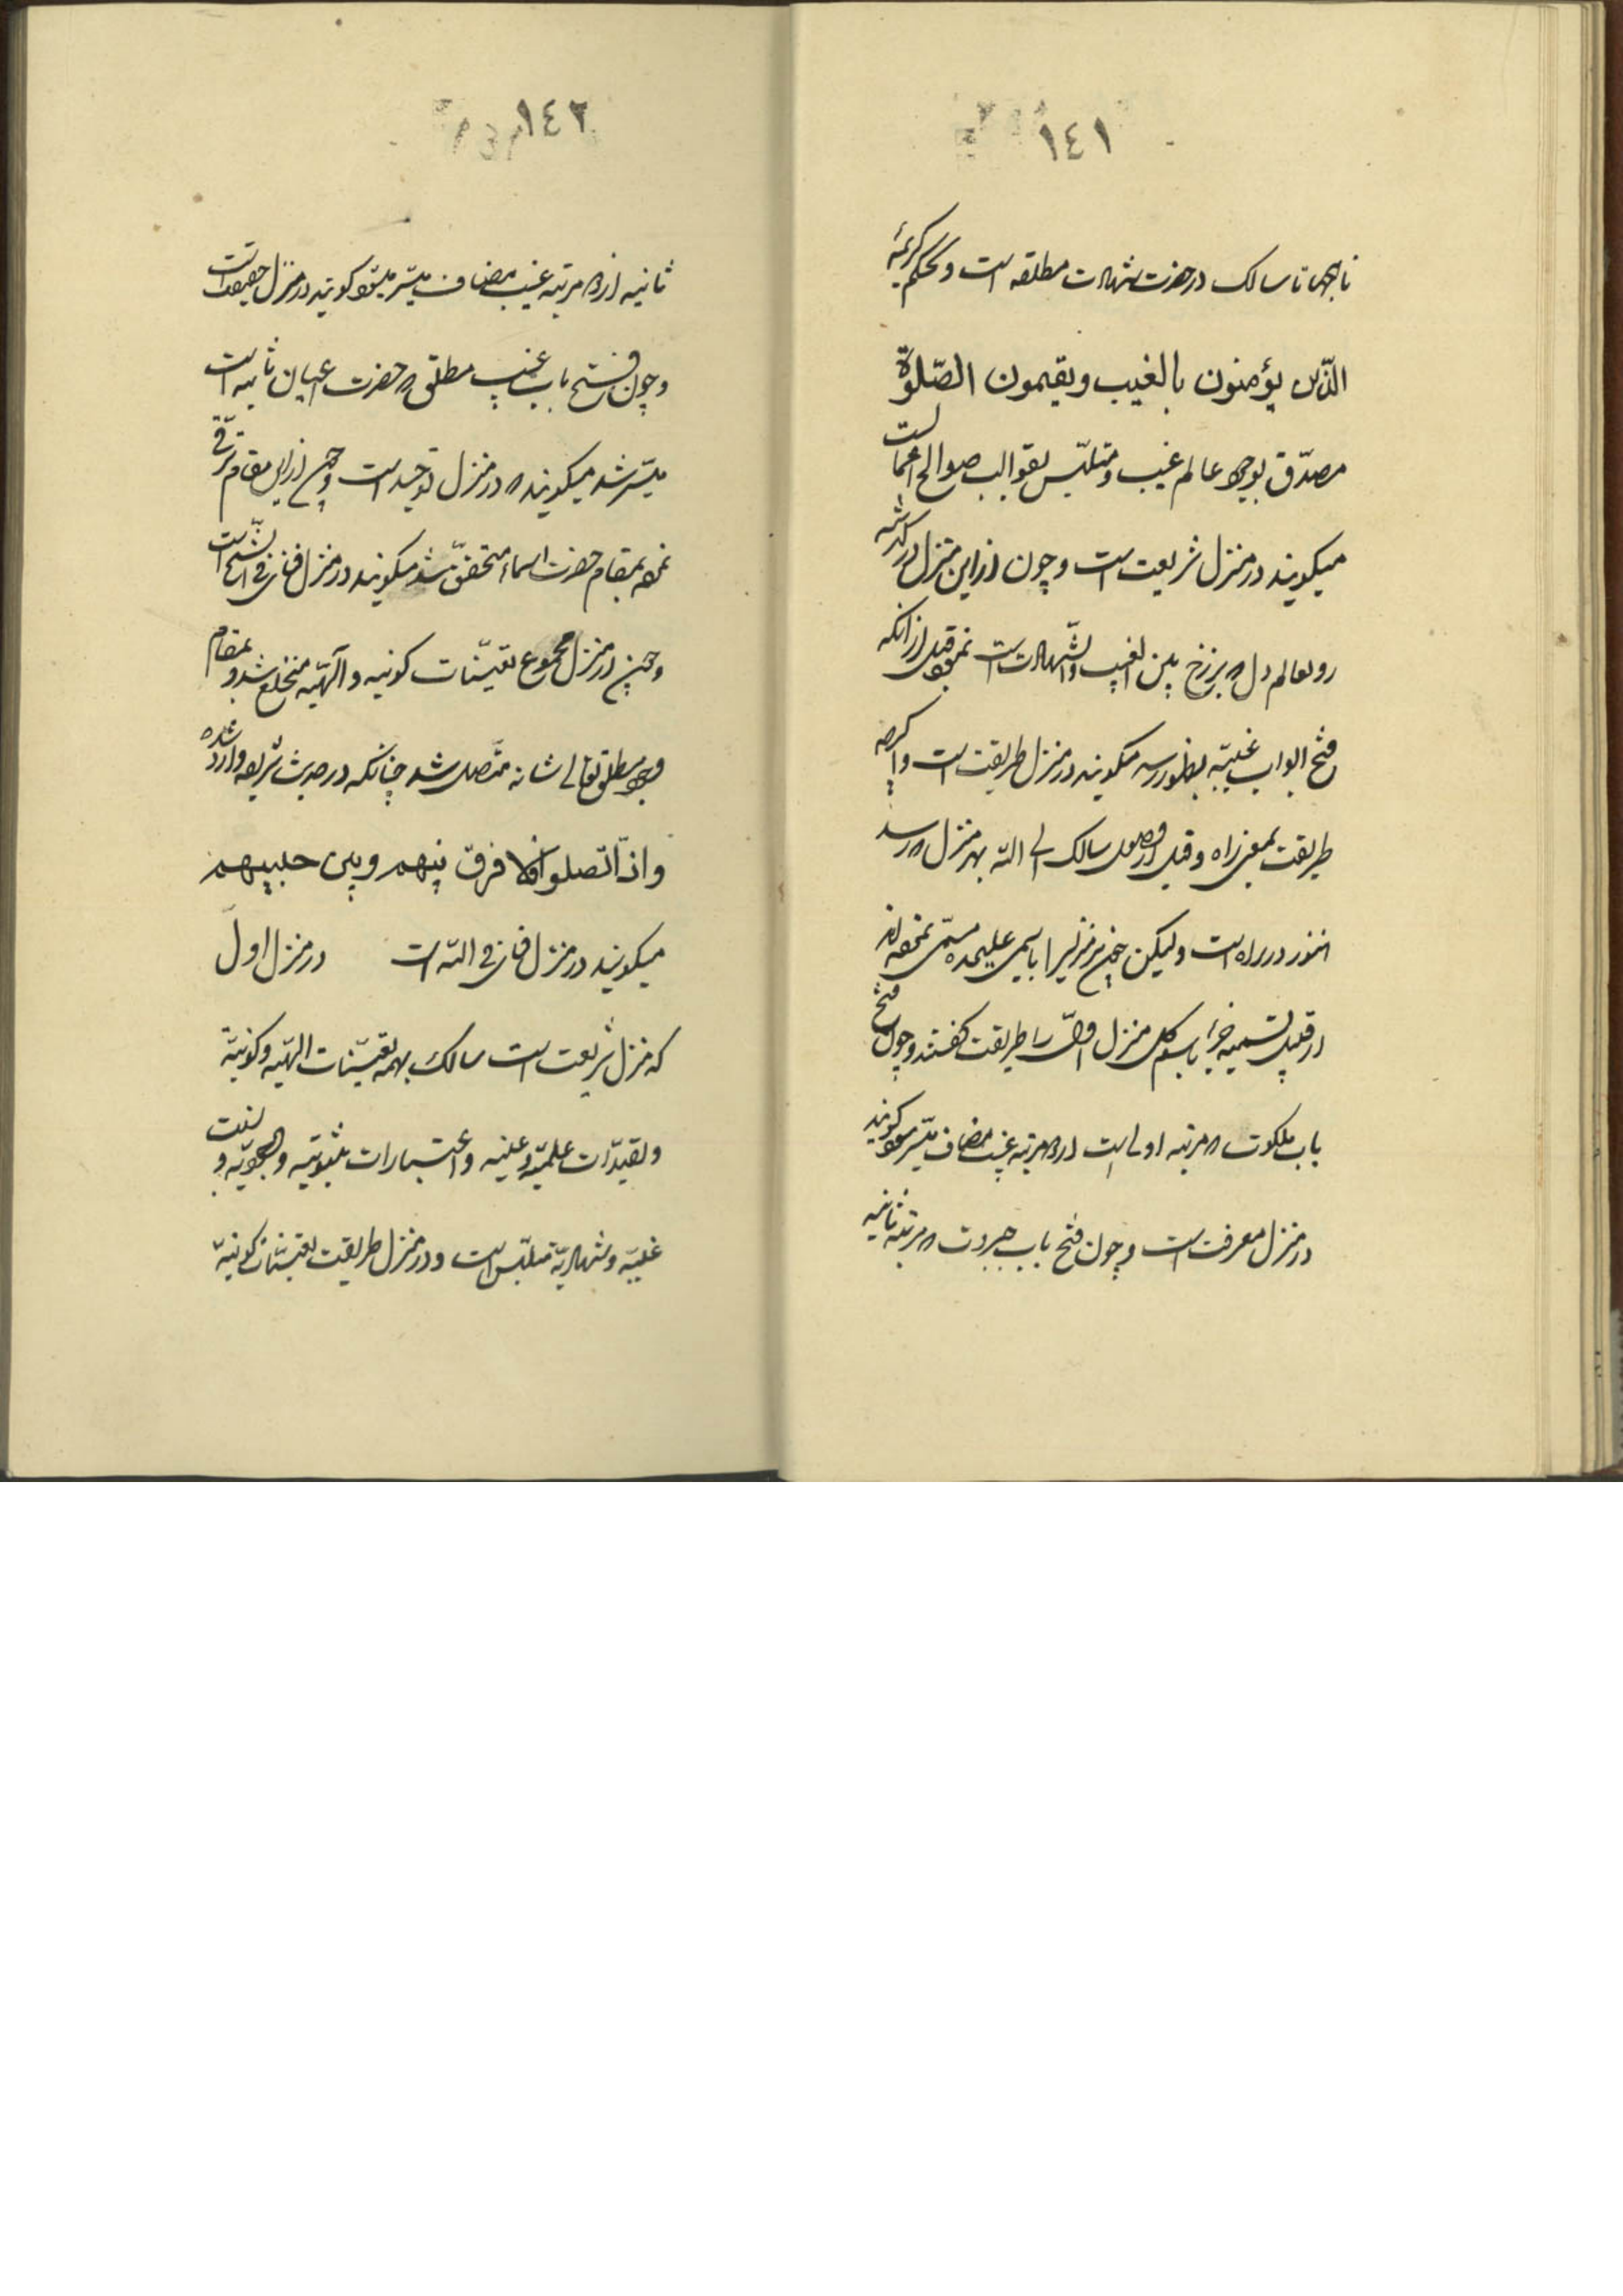 ١٤١
تا سالک در حضرت شهادت مطلقه است و بحکم کریمهٔ
الّذین یؤمنون بالغیب ویقیمون الصّلوة
مصدّق بوجود عالم غیب و متلبّس بقوالب صوالح اعمال است
میکویند در منزل شریعت است و چون از این منزل درکذشته
رو بعالم دل که برزخ بین الغیب والشّهادت است نمود قبل از آنکه
فتح ابواب غیبیّه بظهور رسد میکویند در منزل طریقت است واکرچه
طریقت بمعنی راه و قبل از وصول سالک الی الله بهر منزل که رسد
هنوز در راه است ولیکن چون هر منزلیرا باسمی علیحده مسمّی نموده‌اند
از قبیل تسمیه جزء باسم کل منزل اول را طریقت کفتند وچون فتح
باب ملکوت که مرتبه اولی است از دو مرتبه غیب مضاف میسّر شود کویند
در منزل معرفت است وچون فتح باب جبروت که مرتبه ثانیه
١٤٢
ثانیه از دو مرتبه غیب مضاف میسّر میشود کویند در منزل حقیقت است
وچون فتح باب غیب مطلق که حضرت اعیان ثابته است
میسّر شد میکویند که در منزل توحید است وچون از این مقام ترقّی
نموده بمقام حضرت اسماء متحقّق شد میکویند در منزل فنای فی است
وچون در منزل مجموع تعیّنات کونیه و الهیّه منخلع شد و بمقام
وجود مطلق تعالی شانه متّصل شد چنانکه در حدیث شریف وارد شده
واذا اتّصلوا فلا فرق بینهم وبین حبیبهم
میکویند در منزل فنای فی الله است در منزل اول
که منزل شریعت است سالک بهمه تعیّنات الهیّه وکونیّه
وتقیّدات علمیّه وعینیه واعتبارات ثبوتیّه و وجودیّه و نسب
غیبیّه وشهادیّه متلبّس است و در منزل طریقت تعیّنات کونیّه